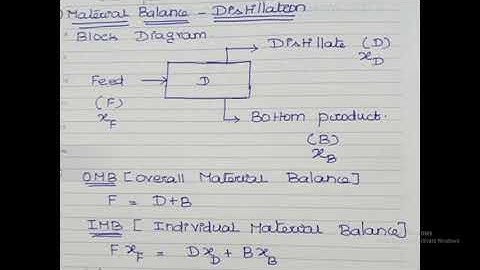 Material Balance - Distillation
Block Diagram
Distillate (D)
x_D
Feed
D
(F)
x_F
Bottom product.
(B)
x_B
OMB [Overall Material Balance]
F = D+B
IMB [Individual Material Balance]
F x_F = D x_D + B x_B